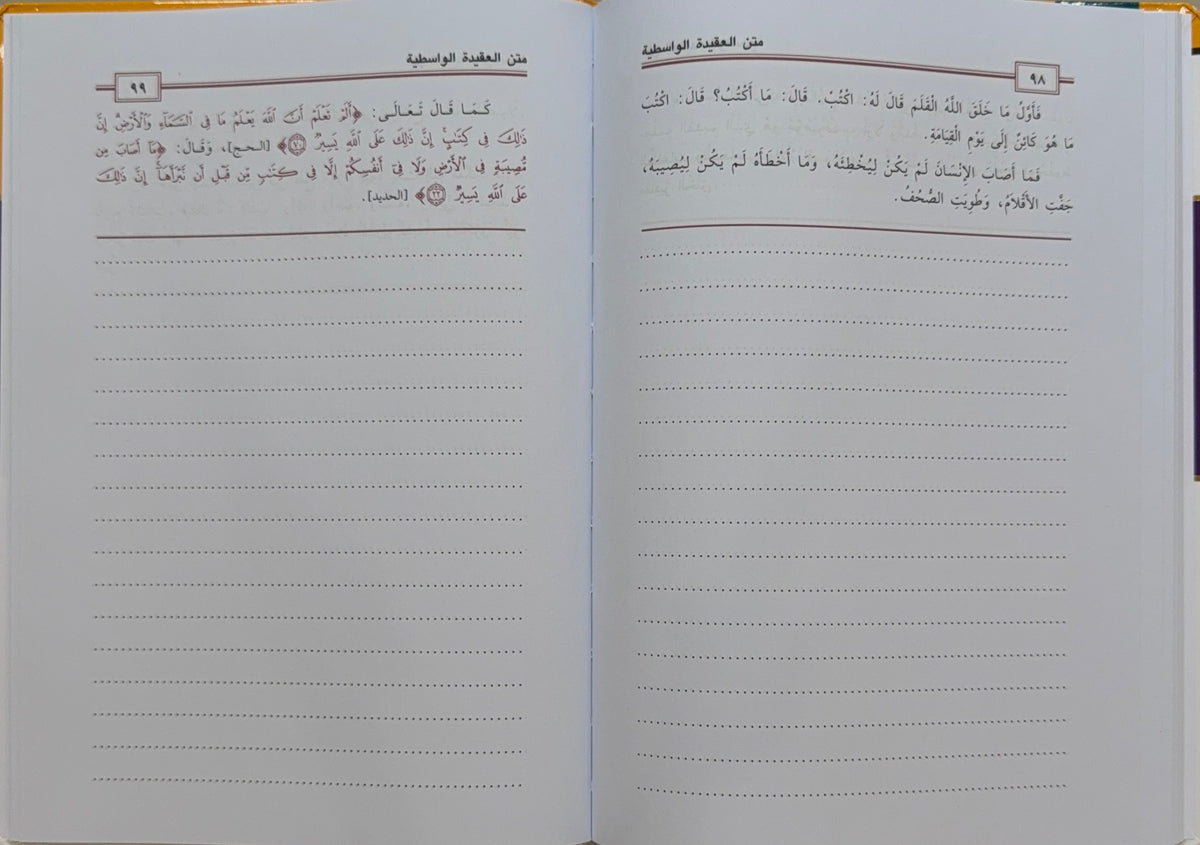 متن العقيدة الواسطية
٩٨
فَأَوَّلُ مَا خَلَقَ اللَّهُ الْقَلَمَ قَالَ لَهُ: اكْتُبْ. قَالَ: مَا أَكْتُبُ؟ قَالَ: اكْتُبْ
مَا هُوَ كَائِنٌ إِلَى يَوْمِ الْقِيَامَةِ.
فَمَا أَصَابَ الإِنْسَانَ لَمْ يَكُنْ لِيُخْطِئَهُ، وَمَا أَخْطَأَهُ لَمْ يَكُنْ لِيُصِيبَهُ،
جَفَّتِ الأَقْلَامُ، وَطُوِيَتِ الصُّحُفُ.
متن العقيدة الواسطية
٩٩
كَمَا قَالَ تَعَالَى: ﴿أَلَمْ تَعْلَمْ أَنَّ ٱللَّهَ يَعْلَمُ مَا فِى ٱلسَّمَآءِ وَٱلْأَرْضِ إِنَّ
ذَٰلِكَ فِى كِتَٰبٍ إِنَّ ذَٰلِكَ عَلَى ٱللَّهِ يَسِيرٌ ٧٠﴾ [الحج]، وَقَالَ: ﴿مَآ أَصَابَ مِن
مُّصِيبَةٍ فِى ٱلْأَرْضِ وَلَا فِىٓ أَنفُسِكُمْ إِلَّا فِى كِتَٰبٍ مِّن قَبْلِ أَن نَّبْرَأَهَآ إِنَّ ذَٰلِكَ
عَلَى ٱللَّهِ يَسِيرٌ ٢٢﴾ [الحديد].